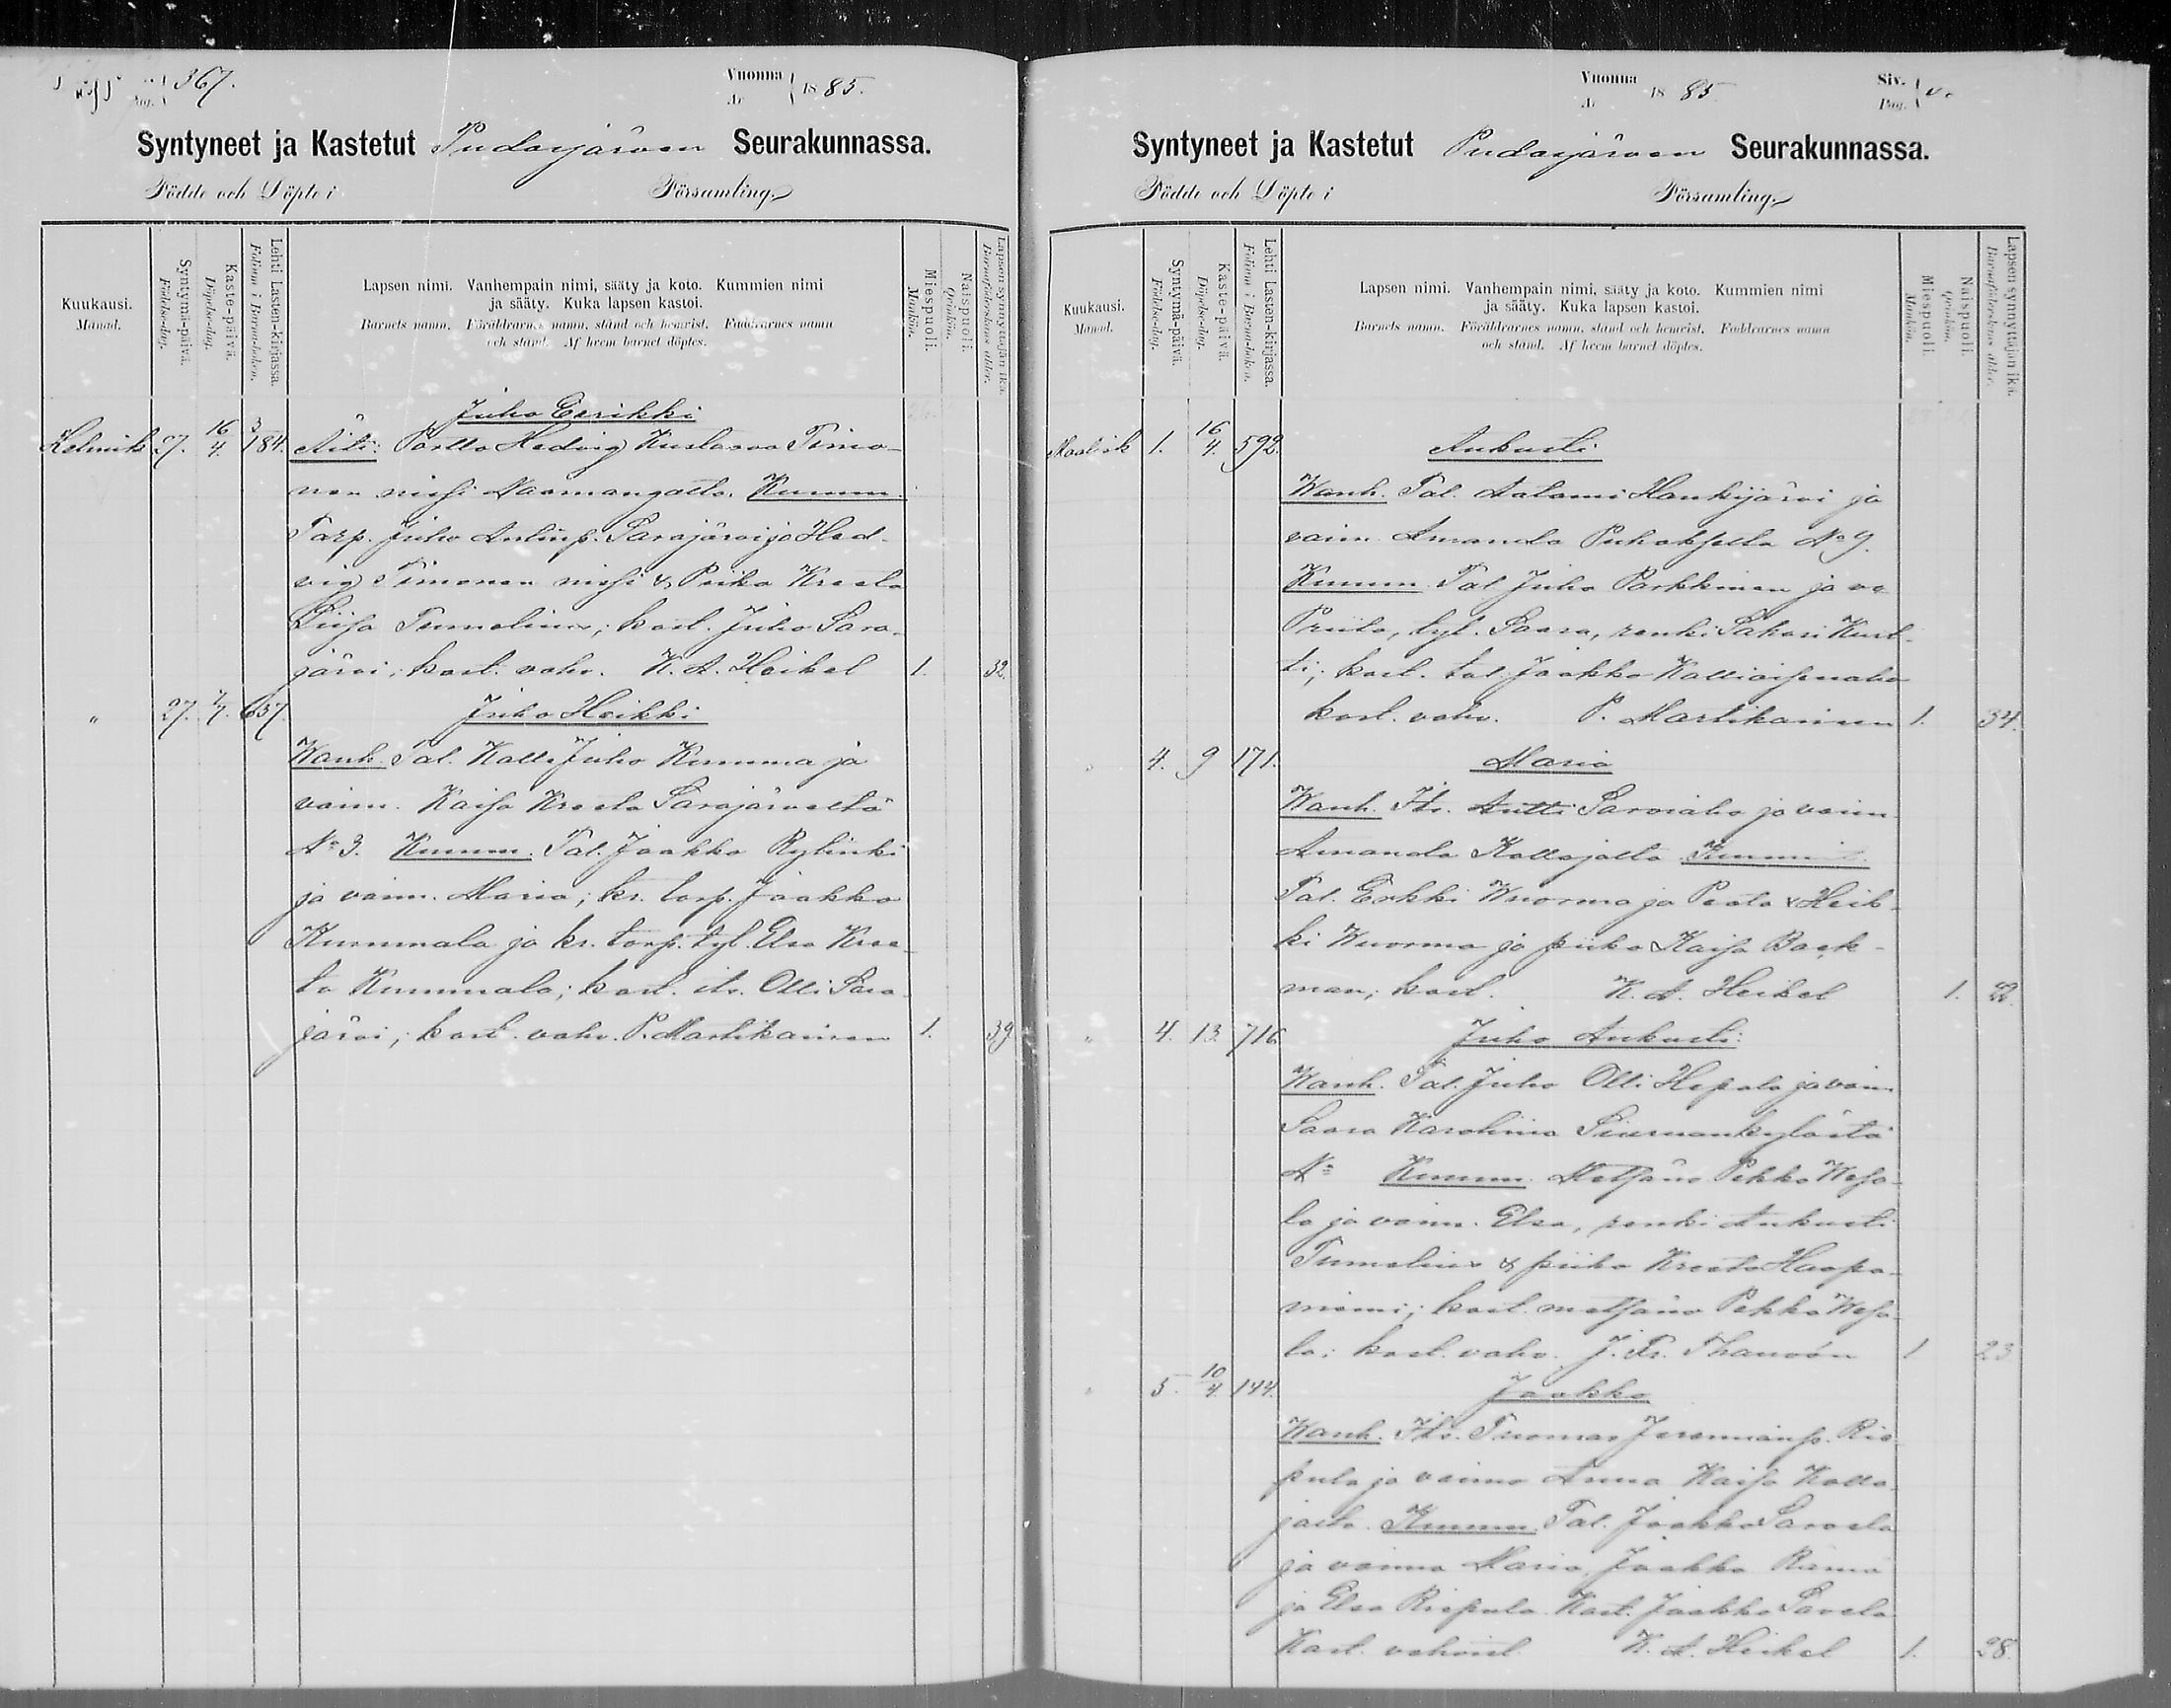 367.
Vuonna 1885.
År
Syntyneet ja Kastetut Pudasjärven Seurakunnassa.
Födde och Döpte i Församling.
Kuukausi.
Månad.
Syntymä-päivä.
Födelse-dag.
Kaste-päivä.
Döpelse-dag.
Lehti Lasten-kirjassa.
Folium i Barna-boken.
Lapsen nimi. Vanhempain nimi, sääty ja koto. Kummien nimi
ja sääty. Kuka lapsen kastoi.
Barnets namn. Föräldrarnes namn, stånd och hemvist. Faddrarnes namn
och stånd. Af hvem barnet döptes.
Miespuoli.
Mankön.
Naispuoli.
Qvinkön.
Lapsen synnyttäjän ikä.
Barnaföderskans ålder.
Juho Eerikki
Helmik 27. 16/4. 184. Äiti: Hedvig Kustaava Timo-
nen Kumm.
Torp. Juho Sarajärvi ja Hed-
vig Timonen & Piika Kreeta
Liisa Tumelius; kast. Juho Sara-
järvi; kast. vahv. K. A. Heikel 1. 32.
„ 27. 637. Juho Heikki
Wanh. Tal. Kalle Juho Kumma ja
vaim. Kaisa Kreeta Sarajärveltä
No 3. Kumm. Tal. Jaakko Rylinki
ja vaim. Maria; kr. torp. Jaakko
Kummala ja kr. torp. tyt. Elsa Kree-
ta Kummala; kast. its. Olli Sara-
järvi; kast. vahv. P. Martikainen 1. 39
Vuonna 1885
År
Siv.
Pag.
Syntyneet ja Kastetut Pudasjärven Seurakunnassa.
Födde och Döpte i Församling.
Kuukausi.
Månad.
Syntymä-päivä.
Födelse-dag.
Kaste-päivä.
Döpelse-dag.
Lehti Lasten-kirjassa.
Folium i Barna-boken.
Lapsen nimi. Vanhempain nimi, sääty ja koto. Kummien nimi
ja sääty. Kuka lapsen kastoi.
Barnets namn. Föräldrarnes namn, stånd och hemvist. Faddrarnes namn
och stånd. Af hvem barnet döptes.
Miespuoli.
Mankön.
Naispuoli.
Qvinkön.
Lapsen synnyttäjän ikä.
Barnaföderskans ålder.
Maalisk 1. 16/4. 592. Aukusti
Wanh. Tal. Aatami Haukijärvi ja
vaim. Amanda No 9.
Kumm. Tal. Juho Parkkinen ja va
Priita, tyt. Saara, renki Sakari Kurt-
ti; kast. tal. Jaakko
kast. vahv. P. Martikainen 1. 34.
4. 9 171. Maria
Wanh. Its. Antti Sarviaho ja vaim
Amanda Kollajalta Kumm
Tal. Erkki Wuorma ja Peeta & Heik-
ki Wuorma ja piika Kaisa Back-
man; kast. K. A. Heikel 1. 22.
„ 4. 13. 716 Juho Aukusti:
Wanh. Tal. Juho Olli Hepola ja vaim
Saara Karolina Siuruankylästä
No Kumm. Metsäno Pekka Wesa-
la ja vaim. Elsa, renki Aukusti
Tumelius & piika Kreeta Haapa-
niemi; kast. metsäno Pekka Wesa-
la; kast. vahv. J. Fr. Thauvón 1 23
5. 10/4. 144. Jaakko
Wanh. Its. Tuomas Jeremianp. Rie-
pula ja vaimo Anna Kaisa Kolla-
jalta. Kumm. Tal. Jaakko Sarvela
ja vaimo Maria, Jaakko Rämä
ja Elsa Riepula. Kast. Jaakko Sarvela
Kast. vahvist K. A. Heikel 1. 28.